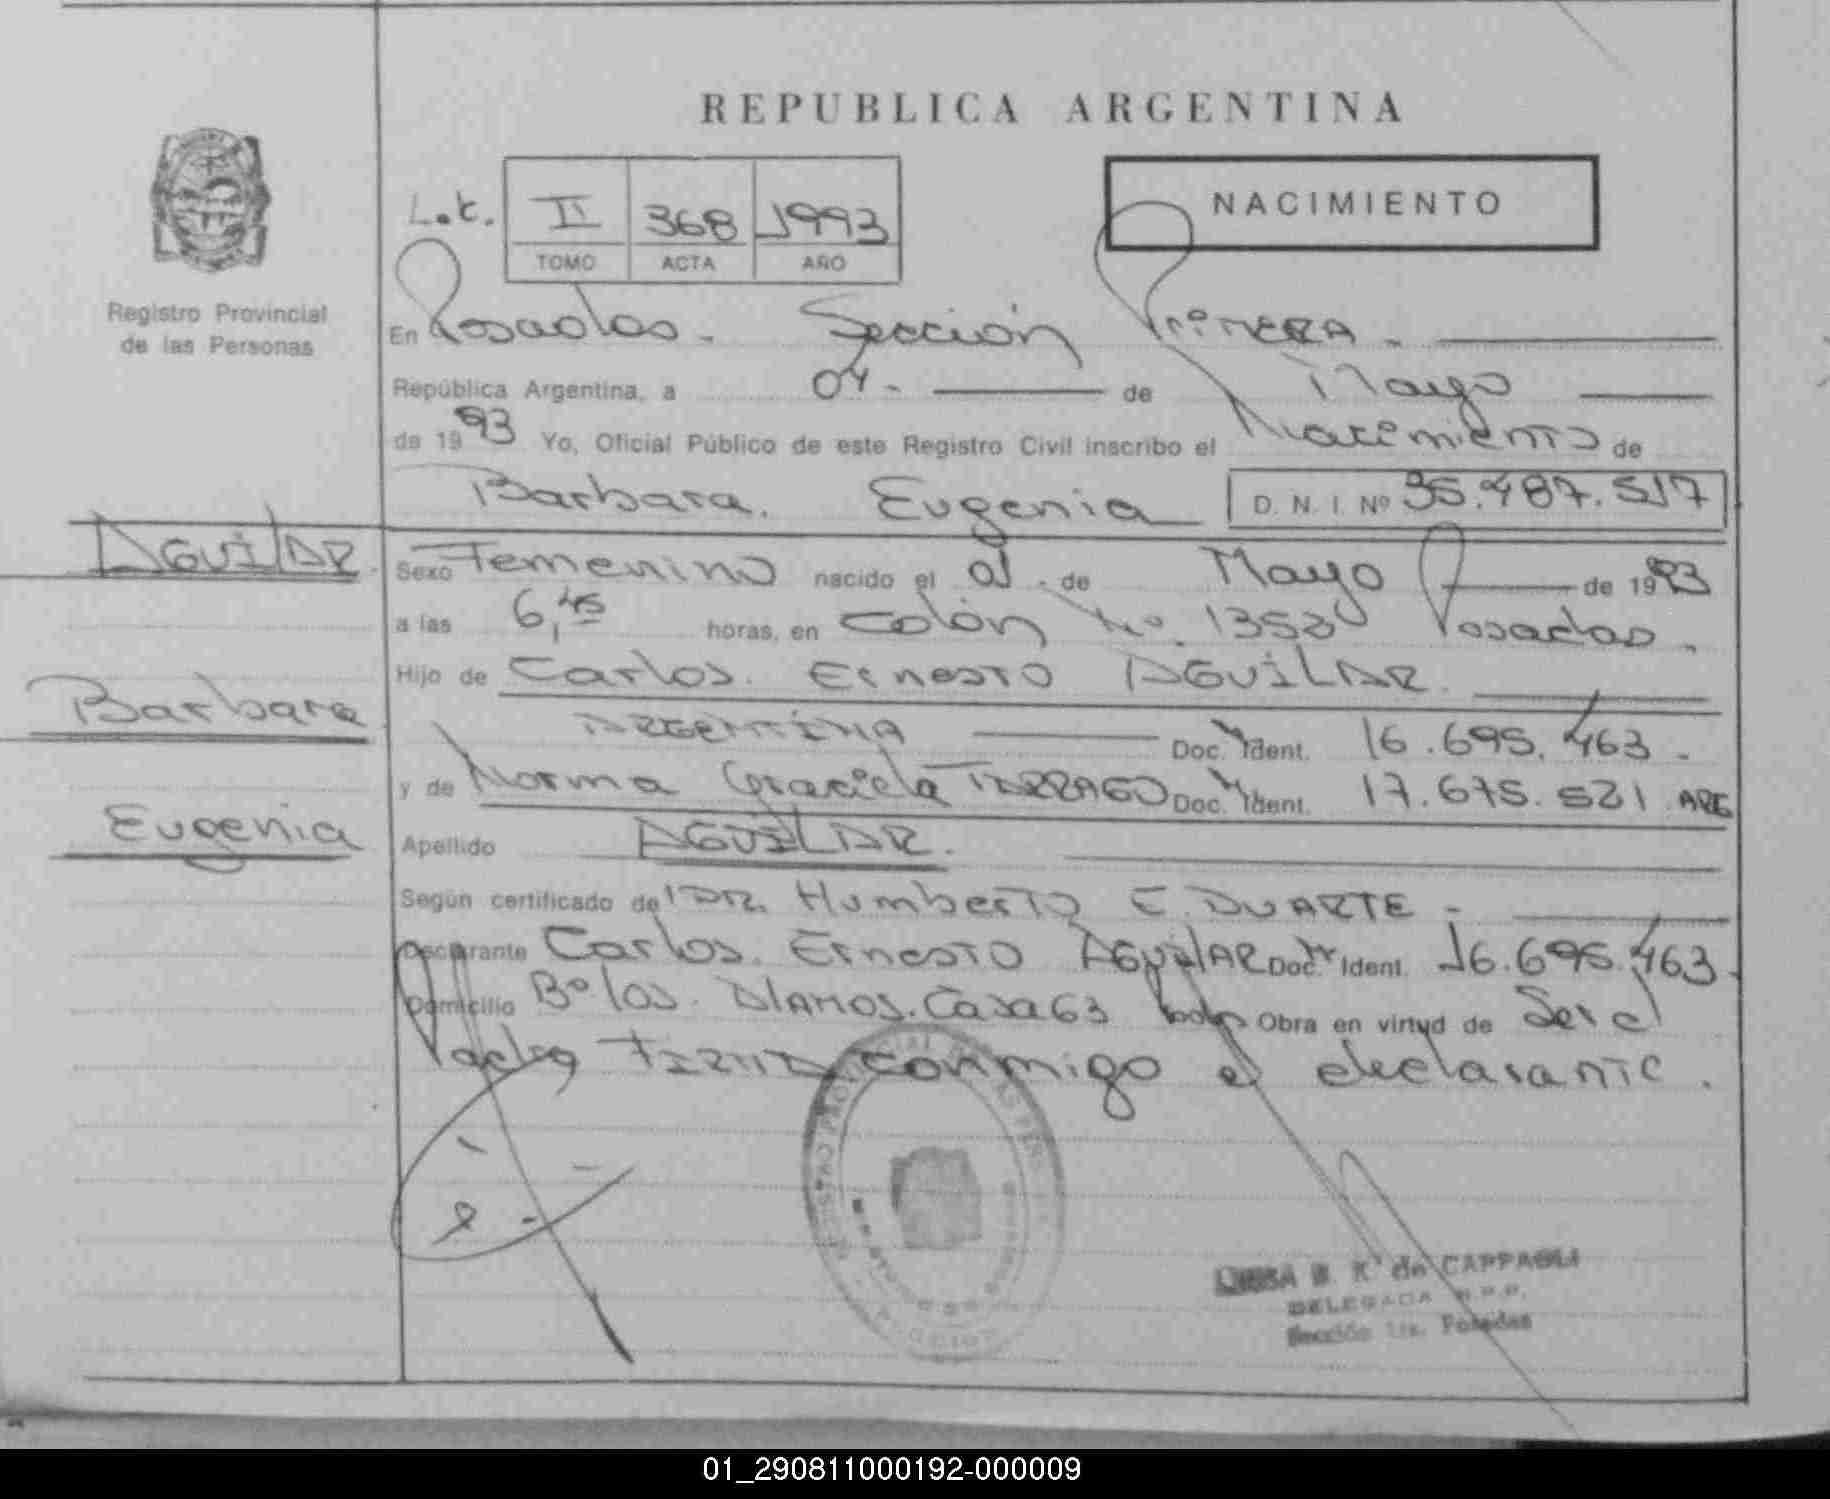 REPUBLICA ARGENTINA
NACIMIENTO
Let. II 368 1993
TOMO ACTA AÑO
Registro Provincial
de las Personas
En Posadas - Sección Primera -
República Argentina, a 04 - de Mayo
de 1993 Yo, Oficial Público de este Registro Civil inscribo el Nacimiento de
Barbara Eugenia D. N. I. Nº 35.487.517
AGUILAR
Sexo Femenino nacido el 01 - de Mayo de 1993
a las 6,45 horas, en Colón Nº 1353 Posadas.
Hijo de Carlos Ernesto AGUILAR
Barbara
ARGENTINA Doc. Ident. 16.695.463 -
y de Norma Graciela TARRAGO Doc. Ident. 17.675.521 ARG
Eugenia
Apellido AGUILAR.
Según certificado de DR. Humberto E. DUARTE -
Declarante Carlos Ernesto AGUILAR Doc. Ident. 16.695.463 -
Domicilio Bº los Alamos. Casa 63 Obra en virtud de Ser el
Padre FIRMA conmigo el declarante.
de CAPPAGLI
DELEGADA R.P.P.
Sección 1ra. Posadas
01_290811000192-000009